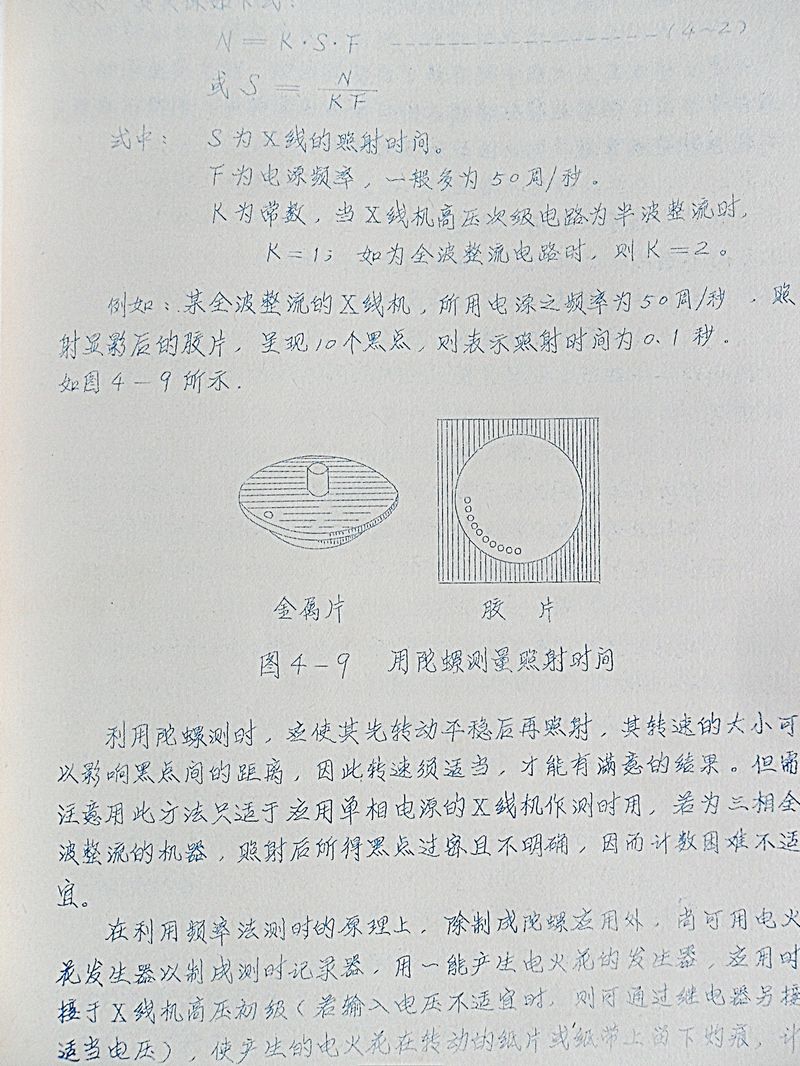 N=K·S·F ------------------(4~2)
或 S = N/KF
式中： S为X线的照射时间。
F为电源频率，一般多为50周/秒。
K为常数，当X线机高压次级电路为半波整流时，
K=1； 如为全波整流电路时，则K=2。
例如：某全波整流的X线机，所用电源之频率为50周/秒，照
射显影后的胶片，呈现10个黑点，则表示照射时间为0.1秒．
如图4－9所示．
金属片 胶 片
图4－9 用陀螺测量照射时间
利用陀螺测时，应使其先转动平稳后再照射，其转速的大小可
以影响黑点间的距离，因此转速须适当，才能有满意的结果。但需
注意用此方法只适于应用单相电源的X线机作测时用，若为三相全
波整流的机器，照射后所得黑点过密且不明确，因而计数困难不适
宜。
在利用频率法测时的原理上，除制成陀螺应用外，尚可用电火
花发生器以制成测时记录器，用一能产生电火花的发生器，应用时
接于X线机高压初级（若输入电压不适宜时，则可通过继电器另接
适当电压），使产生的电火花在转动的纸片或纸带上留下灼痕，计